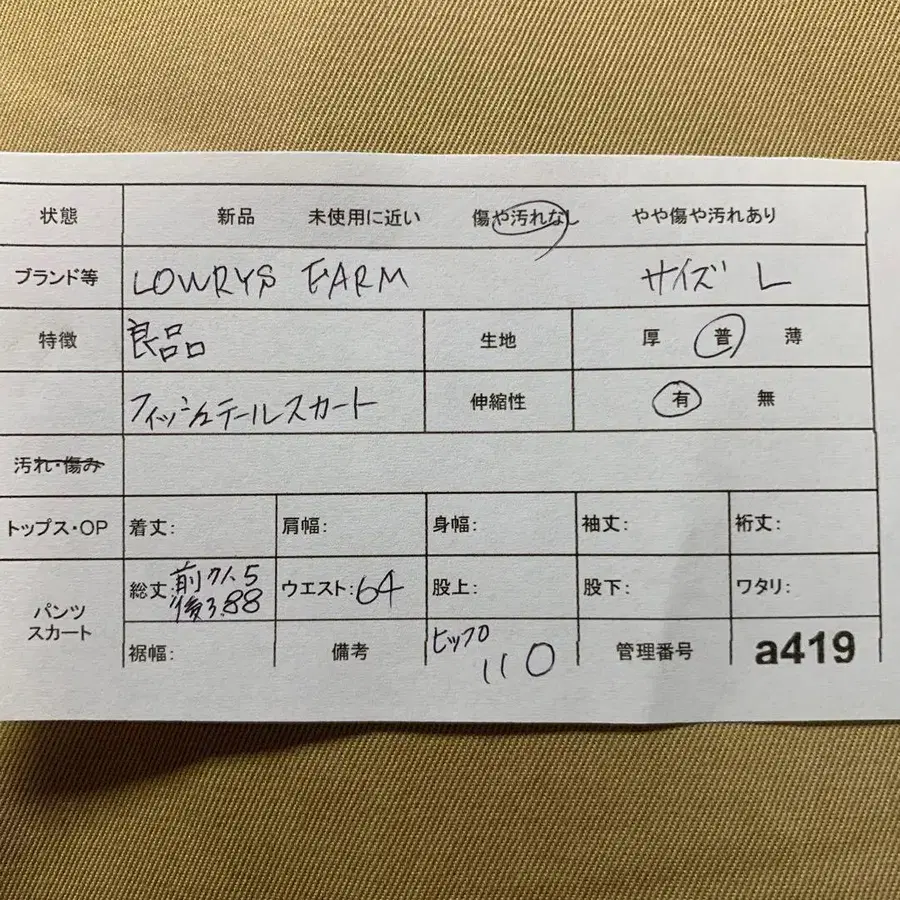 状態 新品 未使用に近い 傷や汚れなし やや傷や汚れあり
ブランド等 LOWRYS FARM サイズ L
特徴 良品 生地 厚 普 薄
フィッシュテールスカート 伸縮性 有 無
汚れ・傷み
トップス・OP 着丈: 肩幅: 身幅: 袖丈: 裄丈:
パンツ スカート 総丈: 前 後 88 ウエスト: 64 股上: 股下: ワタリ:
裾幅: 備考 ヒップ 110 管理番号 a419